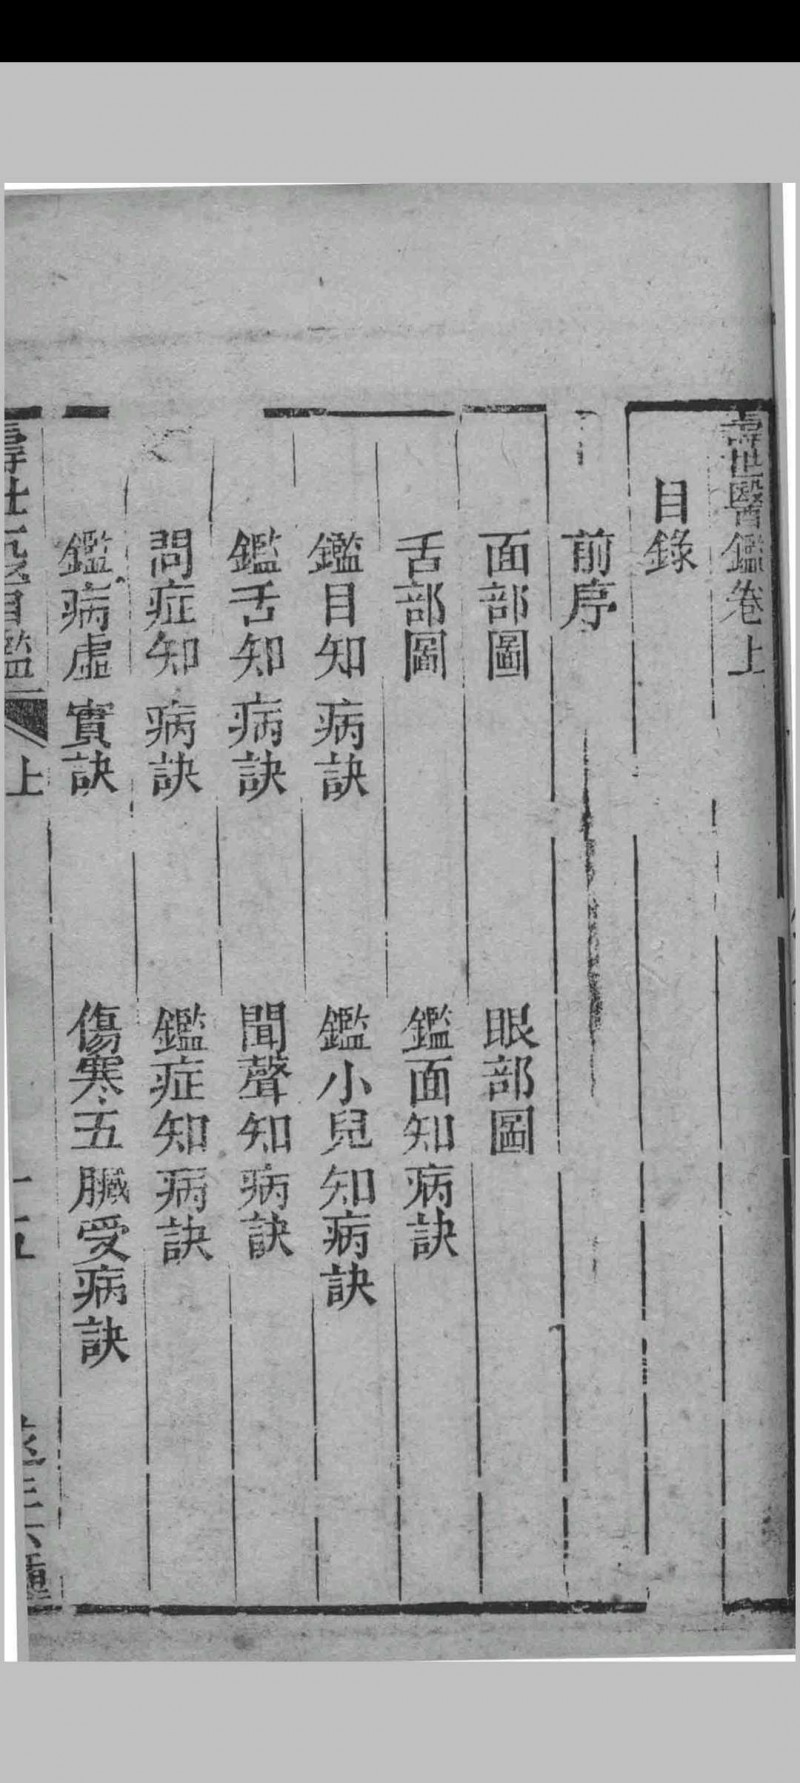 壽世醫鑑卷上
目錄
前序
面部圖　眼部圖
舌部圖　鑑面知病訣
鑑目知病訣　鑑小兒知病訣
鑑舌知病訣　聞聲知病訣
問症知病訣　鑑症知病訣
鑑病虛實訣　傷寒五臟受病訣
壽世醫鑑　上